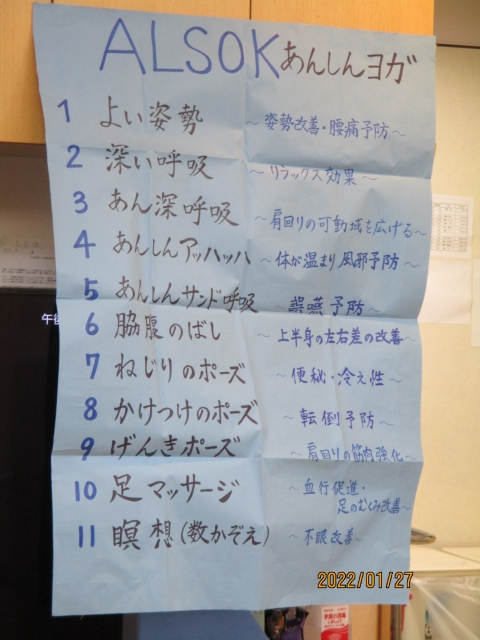 ALSOKあんしんヨガ
1 よい姿勢 ～姿勢改善・腰痛予防～
2 深い呼吸 ～リラックス効果～
3 あん深呼吸 ～肩回りの可動域を広げる～
4 あんしんアッハッハ ～体が温まり風邪予防～
5 あんしんサンド呼吸 ～誤嚥予防～
6 脇腹のばし ～上半身の左右差の改善～
7 ねじりのポーズ ～便秘・冷え性～
8 かけつけのポーズ ～転倒予防～
9 げんきポーズ ～肩回りの筋肉強化～
10 足マッサージ ～血行促進・
足のむくみ改善～
11 瞑想(数かぞえ) ～不眠改善～
午後
2022/01/27